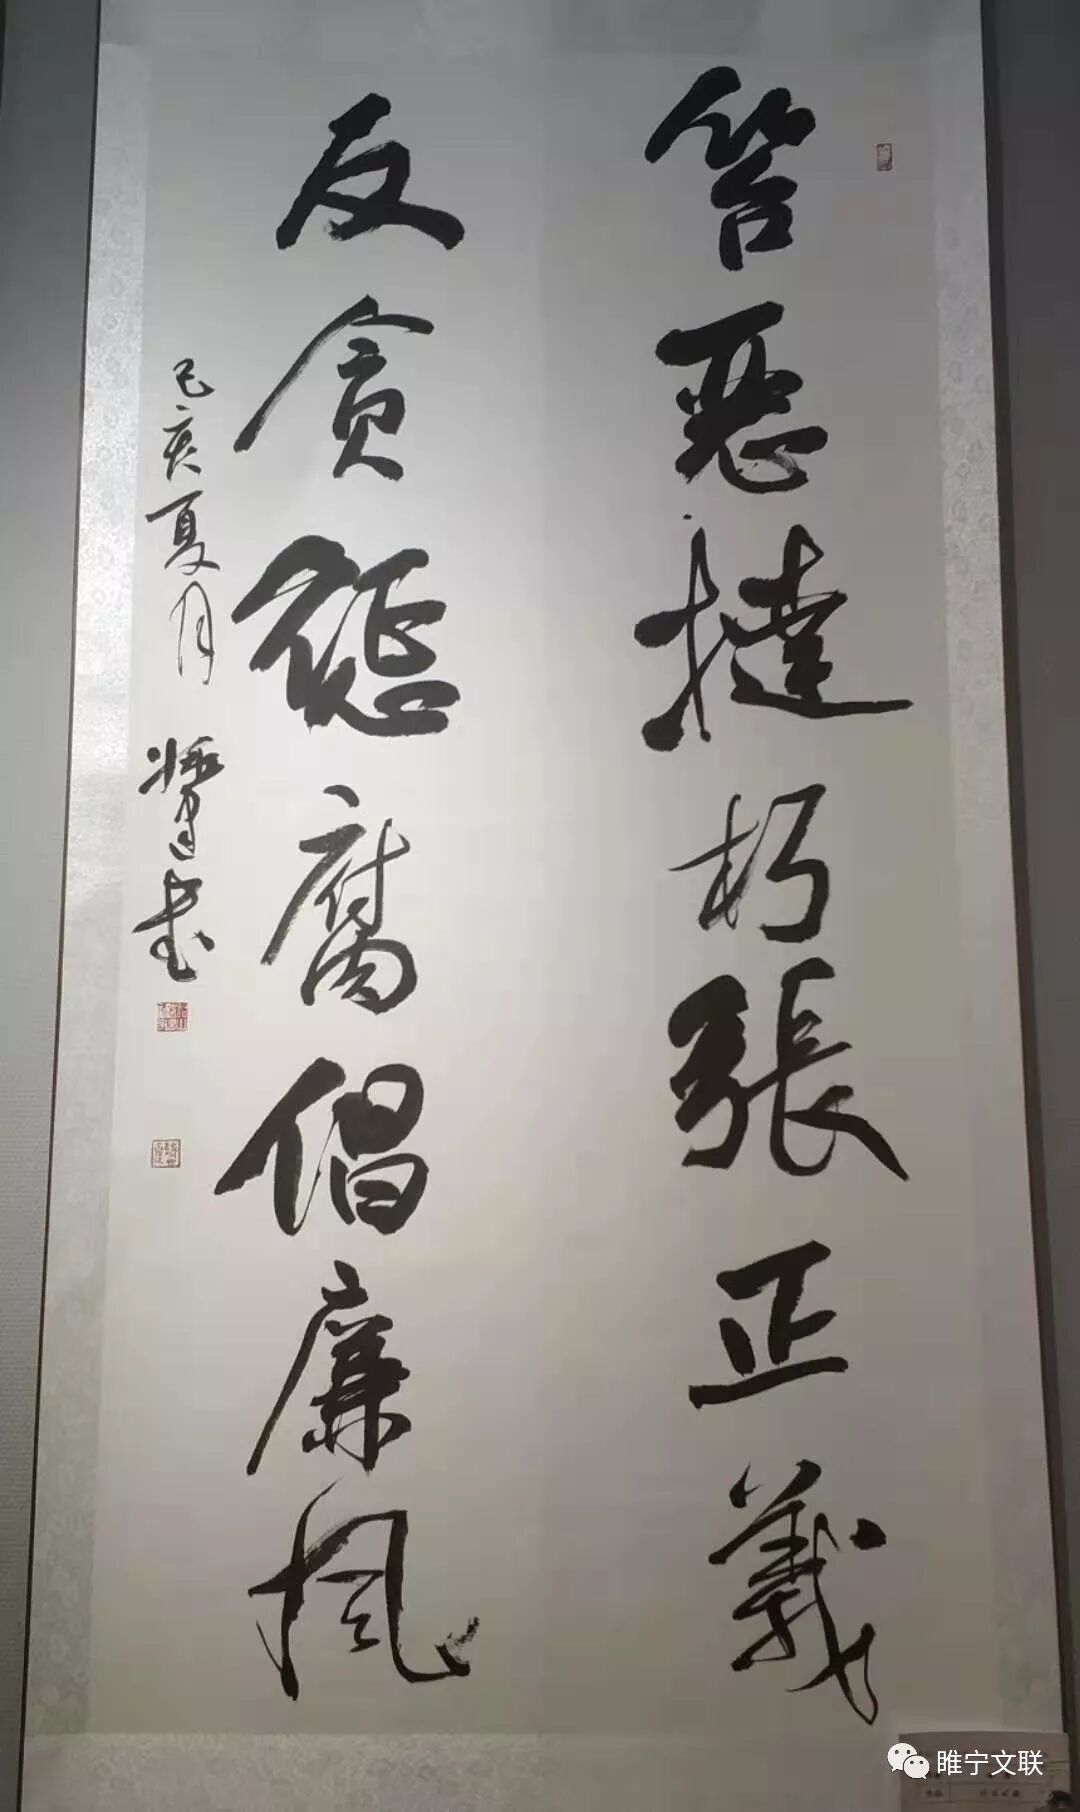 笞惡撻朽張正義
反貪惩腐倡廉風
己亥夏月
書
睢宁文联